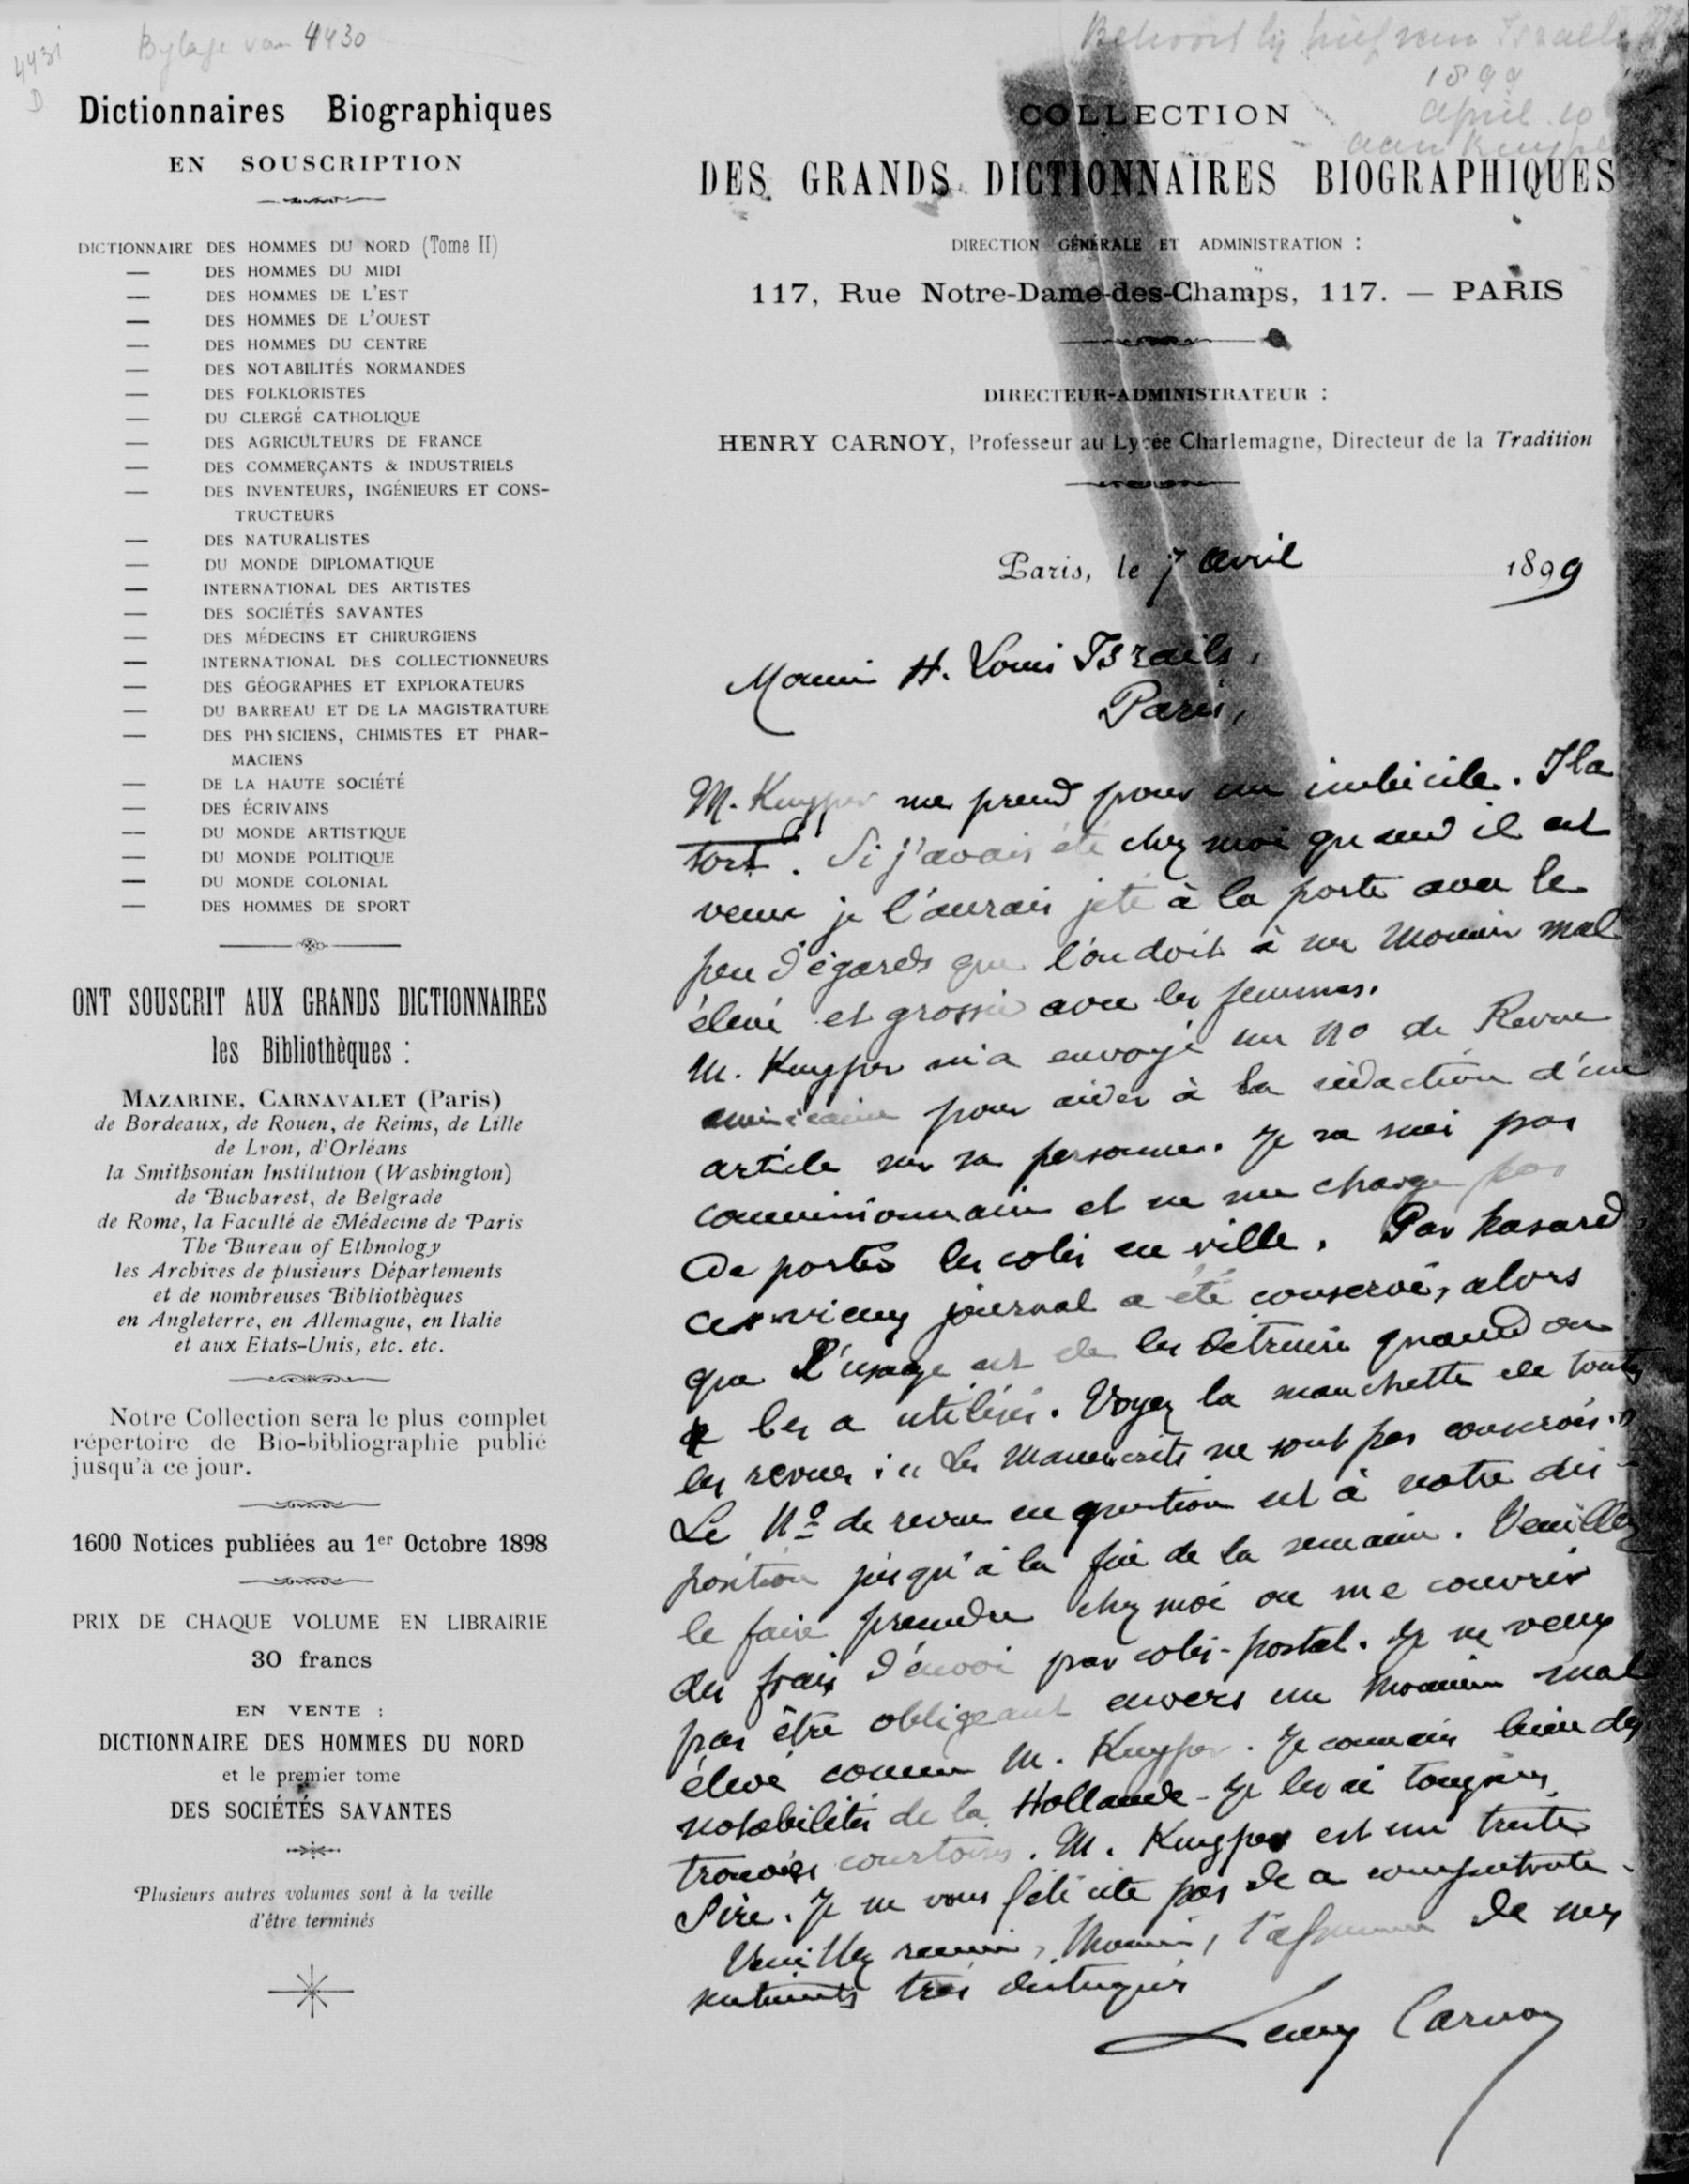 4431
D
Bylage van 4430
Behoort bij brief van Israels
1899
April 10
aan Kuyper
Dictionnaires Biographiques
EN SOUSCRIPTION
DICTIONNAIRE DES HOMMES DU NORD (Tome II)
— DES HOMMES DU MIDI
— DES HOMMES DE L'EST
— DES HOMMES DE L'OUEST
— DES HOMMES DU CENTRE
— DES NOTABILITÉS NORMANDES
— DES FOLKLORISTES
— DU CLERGÉ CATHOLIQUE
— DES AGRICULTEURS DE FRANCE
— DES COMMERÇANTS & INDUSTRIELS
— DES INVENTEURS, INGÉNIEURS ET CONS-
TRUCTEURS
— DES NATURALISTES
— DU MONDE DIPLOMATIQUE
— INTERNATIONAL DES ARTISTES
— DES SOCIÉTÉS SAVANTES
— DES MÉDECINS ET CHIRURGIENS
— INTERNATIONAL DES COLLECTIONNEURS
— DES GÉOGRAPHES ET EXPLORATEURS
— DU BARREAU ET DE LA MAGISTRATURE
— DES PHYSICIENS, CHIMISTES ET PHAR-
MACIENS
— DE LA HAUTE SOCIÉTÉ
— DES ÉCRIVAINS
— DU MONDE ARTISTIQUE
— DU MONDE POLITIQUE
— DU MONDE COLONIAL
— DES HOMMES DE SPORT
ONT SOUSCRIT AUX GRANDS DICTIONNAIRES
les Bibliothèques :
MAZARINE, CARNAVALET (Paris)
de Bordeaux, de Rouen, de Reims, de Lille
de Lyon, d'Orléans
la Smithsonian Institution (Washington)
de Bucharest, de Belgrade
de Rome, la Faculté de Médecine de Paris
The Bureau of Ethnology
les Archives de plusieurs Départements
et de nombreuses Bibliothèques
en Angleterre, en Allemagne, en Italie
et aux Etats-Unis, etc. etc.
Notre Collection sera le plus complet
répertoire de Bio-bibliographie publié
jusqu'à ce jour.
1600 Notices publiées au 1er Octobre 1898
PRIX DE CHAQUE VOLUME EN LIBRAIRIE
30 francs
EN VENTE :
DICTIONNAIRE DES HOMMES DU NORD
et le premier tome
DES SOCIÉTÉS SAVANTES
Plusieurs autres volumes sont à la veille
d'être terminés
COLLECTION
DES GRANDS DICTIONNAIRES BIOGRAPHIQUES
DIRECTION GÉNÉRALE ET ADMINISTRATION :
117, Rue Notre-Dame-des-Champs, 117. — PARIS
DIRECTEUR-ADMINISTRATEUR :
HENRY CARNOY, Professeur au Lycée Charlemagne, Directeur de la Tradition
Paris, le 7 avril 1899
Monsieur H. Louis Israëls,
Paris,
M. Kuyper me prend pour un imbécile. Il a
tort. Si j'avais été chez moi quand il est
venu je l'aurais jeté à la porte avec le
peu d'égards que l'on doit à un Monsieur mal
élevé et grossier avec les femmes.
M. Kuyper m'a envoyé un No de Revue
américaine pour aider à la rédaction d'un
article sur sa personne. Je ne suis pas
commissionnaire et ne me charge pas
de porter les colis en ville. Par hasard,
ce vieux journal a été conservé, alors
que l'usage est de les détruire quand on
les a utilisés. Voyez la manchette de toutes
les revues : "Les Manuscrits ne sont pas conservés."
Le No de revue en question est à votre dis-
position jusqu'à la fin de la semaine. Veuillez
le faire prendre chez moi ou me couvrir
des frais d'envoi par colis-postal. Je ne veux
pas être obligeant envers un Monsieur mal
élevé comme M. Kuyper. Je connais bien des
notabilités de la Hollande - Je les ai toujours
trouvés courtoises. M. Kuyper est un triste
Sire. Je ne vous félicite pas de ce compatriote.
Veuillez recevoir, Monsieur, l'assurance de mes
sentiments très distingués
Henry Carnoy